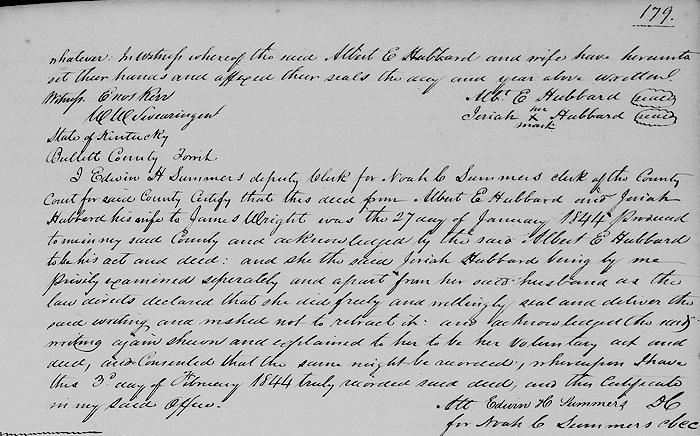 179.
whatever: In witness whereof the said Albert E Hubbard and wife have hereunto
set their hands and affixed their seals the day and year above written
Witness Enos Kerr Albt E Hubbard (seal)
W W Swearingen Jeriah her x mark Hubbard (seal)
State of Kentucky
Bullitt County Towit
I Edwin H Summers deputy Clerk for Noah C Summers clerk of the County
Court for said County Certify that this deed from Albert E Hubbard and Jeriah
Hubbard his wife to James Wright was the 27 day of January 1844 Produced
to me in my said County and acknowledged by the said Albert E Hubbard
to be his act and deed: and she the said Jeriah Hubbard being by me
Privily examined seperately and apart from her said husband as the
law directs declared that she did freely and willingly seal and deliver the
said writing and wished not to retract it: and acknowledged the said
writing again shewn and explained to her to be her voluntary act and
deed, and Consented that the same might be recorded, whereupon I have
this 3d day of February 1844 truly recorded said deed, and this Certificate
in my said Office.
Att Edwin H Summers DC
for Noah C Summers